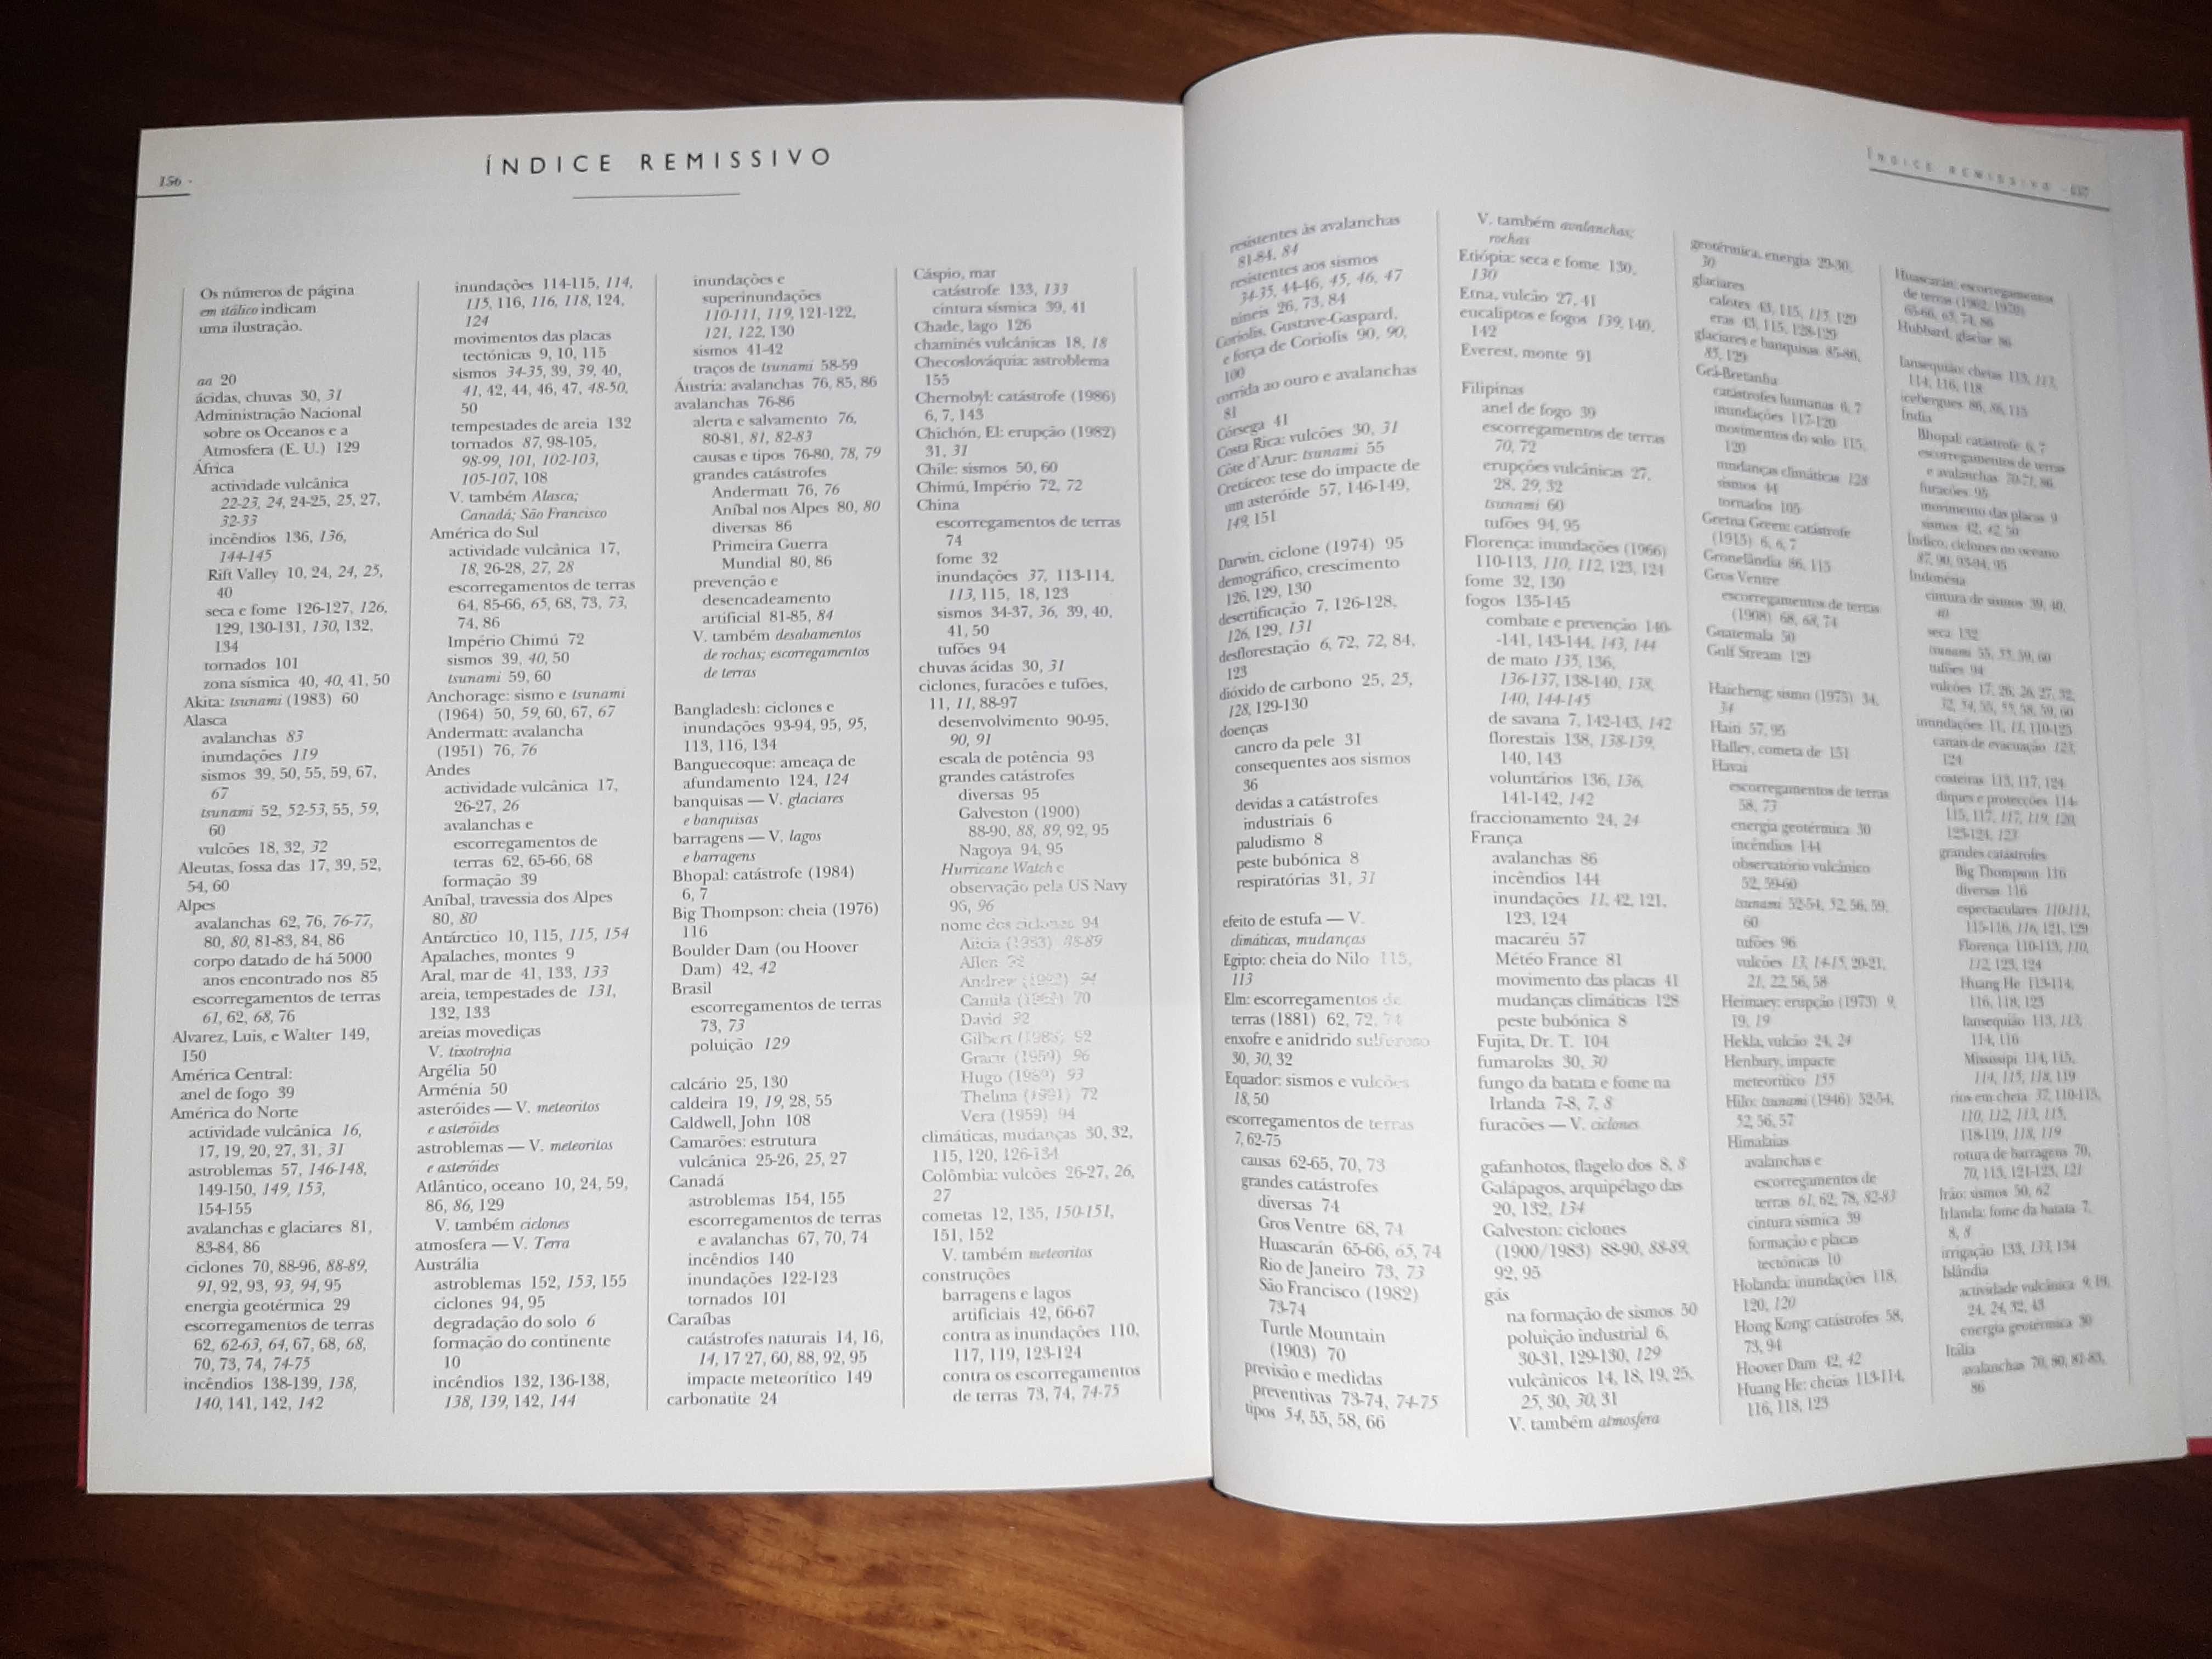 156
ÍNDICE REMISSIVO
Os números de página
em itálico indicam
uma ilustração.
aa 20
ácidas, chuvas 30, 31
Administração Nacional
sobre os Oceanos e a
Atmosfera (E. U.) 129
África
actividade vulcânica
22-23, 24, 24-25, 25, 27,
32-33
incêndios 136, 136,
144-145
Rift Valley 10, 24, 24, 25,
40
seca e fome 126-127, 126,
129, 130-131, 130, 132,
134
tornados 101
zona sísmica 40, 40, 41, 50
Akita: tsunami (1983) 60
Alasca
avalanchas 83
inundações 119
sismos 39, 50, 55, 59, 67,
67
tsunami 52, 52-53, 55, 59,
60
vulcões 18, 32, 32
Aleutas, fossa das 17, 39, 52,
54, 60
Alpes
avalanchas 62, 76, 76-77,
80, 80, 81-83, 84, 86
corpo datado de há 5000
anos encontrado nos 85
escorregamentos de terras
61, 62, 68, 76
Alvarez, Luis, e Walter 149,
150
América Central:
anel de fogo 39
América do Norte
actividade vulcânica 16,
17, 19, 20, 27, 31, 31
astroblemas 57, 146-148,
149-150, 149, 153,
154-155
avalanchas e glaciares 81,
83-84, 86
ciclones 70, 88-96, 88-89,
91, 92, 93, 93, 94, 95
energia geotérmica 29
escorregamentos de terras
62, 62-63, 64, 67, 68, 68,
70, 73, 74, 74-75
incêndios 138-139, 138,
140, 141, 142, 142
inundações 114-115, 114,
115, 116, 116, 118, 124,
124
movimentos das placas
tectónicas 9, 10, 115
sismos 34-35, 39, 39, 40,
41, 42, 44, 46, 47, 48-50,
50
tempestades de areia 132
tornados 87, 98-105,
98-99, 101, 102-103,
105-107, 108
V. também Alasca;
Canadá; São Francisco
América do Sul
actividade vulcânica 17,
18, 26-28, 27, 28
escorregamentos de terras
64, 85-66, 65, 68, 73, 73,
74, 86
Império Chimú 72
sismos 39, 40, 50
tsunami 59, 60
Anchorage: sismo e tsunami
(1964) 50, 59, 60, 67, 67
Andermatt: avalancha
(1951) 76, 76
Andes
actividade vulcânica 17,
26-27, 26
avalanchas e
escorregamentos de
terras 62, 65-66, 68
formação 39
Aníbal, travessia dos Alpes
80, 80
Antárctico 10, 115, 115, 154
Apalaches, montes 9
Aral, mar de 41, 133, 133
areia, tempestades de 131,
132, 133
areias movediças
V. tixotropia
Argélia 50
Arménia 50
asteróides — V. meteoritos
e asteróides
astroblemas — V. meteoritos
e asteróides
Atlântico, oceano 10, 24, 59,
86, 86, 129
V. também ciclones
atmosfera — V. Terra
Austrália
astroblemas 152, 153, 155
ciclones 94, 95
degradação do solo 6
formação do continente
10
incêndios 132, 136-138,
138, 139, 142, 144
inundações e
superinundações
110-111, 119, 121-122,
121, 122, 130
sismos 41-42
traços de tsunami 58-59
Áustria: avalanchas 76, 85, 86
avalanchas 76-86
alerta e salvamento 76,
80-81, 81, 82-83
causas e tipos 76-80, 78, 79
grandes catástrofes
Andermatt 76, 76
Aníbal nos Alpes 80, 80
diversas 86
Primeira Guerra
Mundial 80, 86
prevenção e
desencadeamento
artificial 81-85, 84
V. também desabamentos
de rochas; escorregamentos
de terras
Bangladesh: ciclones e
inundações 93-94, 95, 95,
113, 116, 134
Banguecoque: ameaça de
afundamento 124, 124
banquisas — V. glaciares
e banquisas
barragens — V. lagos
e barragens
Bhopal: catástrofe (1984)
6, 7
Big Thompson: cheia (1976)
116
Boulder Dam (ou Hoover
Dam) 42, 42
Brasil
escorregamentos de terras
73, 73
poluição 129
calcário 25, 130
caldeira 19, 19, 28, 55
Caldwell, John 108
Camarões: estrutura
vulcânica 25-26, 25, 27
Canadá
astroblemas 154, 155
escorregamentos de terras
e avalanchas 67, 70, 74
incêndios 140
inundações 122-123
tornados 101
Caraíbas
catástrofes naturais 14, 16,
14, 17 27, 60, 88, 92, 95
impacte meteorítico 149
carbonatite 24
Cáspio, mar
catástrofe 133, 133
cintura sísmica 39, 41
Chade, lago 126
chaminés vulcânicas 18, 18
Checoslováquia: astroblema
155
Chernobyl: catástrofe (1986)
6, 7, 143
Chichón, El: erupção (1982)
31, 31
Chile: sismos 50, 60
Chimú, Império 72, 72
China
escorregamentos de terras
74
fome 32
inundações 37, 113-114,
113, 115, 18, 123
sismos 34-37, 36, 39, 40,
41, 50
tufões 94
chuvas ácidas 30, 31
ciclones, furacões e tufões,
11, 11, 88-97
desenvolvimento 90-95,
90, 91
escala de potência 93
grandes catástrofes
diversas 95
Galveston (1900)
88-90, 88, 89, 92, 95
Nagoya 94, 95
Hurricane Watch e
observação pela US Navy
96, 96
nome dos ciclones 94
Alicia (1983) 88-89
Allen
Andrew (1992) 94
Camila 70
David 92
Gilbert (1988) 92
Gracie (1959) 96
Hugo (1989) 93
Thelma (1991) 72
Vera (1959) 94
climáticas, mudanças 30, 32,
115, 120, 126-134
Colômbia: vulcões 26-27, 26,
27
cometas 12, 135, 150-151,
151, 152
V. também meteoritos
construções
barragens e lagos
artificiais 42, 66-67
contra as inundações 110,
117, 119, 123-124
contra os escorregamentos
de terras 73, 74, 74-75
ÍNDICE REMISSIVO
resistentes às avalanchas
81-84, 84
resistentes aos sismos
34-35, 44-46, 45, 46, 47
26, 73, 84
Coriolis, Gustave-Gaspard,
e força de Coriolis 90, 90,
100
corrida ao ouro e avalanchas
81
Córsega 41
Costa Rica: vulcões 30, 31
Côte d'Azur: tsunami 55
Cretáceo: tese do impacte de
um asteróide 57, 146-149,
149, 151
Darwin, ciclone (1974) 95
demográfico, crescimento
126, 129, 130
desertificação 7, 126-128,
126, 129, 131
desflorestação 6, 72, 72, 84,
123
dióxido de carbono 25, 25,
128, 129-130
doenças
cancro da pele 31
consequentes aos sismos
36
devidas a catástrofes
industriais 6
paludismo 8
peste bubónica 8
respiratórias 31, 31
efeito de estufa — V.
climáticas, mudanças
Egipto: cheia do Nilo 113,
113
Elm: escorregamentos de
terras (1881) 62, 72, 74
enxofre e anidrido sulfuroso
30, 30, 32
Equador: sismos e vulcões
18, 50
escorregamentos de terras
7, 62-75
causas 62-65, 70, 73
grandes catástrofes
diversas 74
Gros Ventre 68, 74
Huascarán 65-66, 65, 74
Rio de Janeiro 73, 73
São Francisco (1982)
73-74
Turtle Mountain
(1903) 70
previsão e medidas
preventivas 73-74, 74-75
tipos 54, 55, 58, 66
V. também avalanchas;
rochas
Etiópia: seca e fome 130,
130
Etna, vulcão 27, 41
eucaliptos e fogos 139, 140,
142
Everest, monte 91
Filipinas
anel de fogo 39
escorregamentos de terras
70, 72
erupções vulcânicas 27,
28, 29, 32
tsunami 60
tufões 94, 95
Florença: inundações (1966)
110-113, 110, 112, 123, 124
fome 32, 130
fogos 135-145
combate e prevenção 140-
-141, 143-144, 143, 144
de mato 135, 136,
136-137, 138-140, 138,
140, 144-145
de savana 7, 142-143, 142
florestais 138, 138-139,
140, 143
voluntários 136, 136,
141-142, 142
fraccionamento 24, 24
França
avalanchas 86
incêndios 144
inundações 11, 42, 121,
123, 124
macaréu 57
Météo France 81
movimento das placas 41
mudanças climáticas 128
peste bubónica 8
Fujita, Dr. T. 104
fumarolas 30, 30
fungo da batata e fome na
Irlanda 7-8, 7, 8
furacões — V. ciclones
gafanhotos, flagelo dos 8, 8
Galápagos, arquipélago das
20, 132, 134
Galveston: ciclones
(1900/1983) 88-90, 88-89,
92, 95
gás
na formação de sismos 50
poluição industrial 6,
30-31, 129-130, 129
vulcânicos 14, 18, 19, 25,
25, 30, 30, 31
V. também atmosfera
geotérmica, energia 29-30,
30
glaciares
calotes 43, 115, 115, 129
eras 43, 115, 128-129
glaciares e banquisas 85-86,
85, 129
Grã-Bretanha
catástrofes humanas 6, 7
inundações 117-120
movimentos do solo 115,
120
mudanças climáticas 128
sismos 44
tornados 105
Gretna Green: catástrofe
(1915) 6, 6, 7
Gronelândia 86, 115
Gros Ventre
escorregamentos de terras
(1908) 68, 68, 74
Guatemala 50
Gulf Stream 129
Haicheng: sismo (1975) 34,
34
Haiti 57, 95
Halley, cometa de 151
Havai
escorregamentos de terras
58, 73
energia geotérmica 30
incêndios 144
observatório vulcânico
52, 59-60
tsunami 52-54, 52, 56, 59,
60
tufões 96
vulcões 13, 14-15, 20-21,
21, 22, 56, 58
Heimaey: erupção (1973) 9,
19, 19
Hekla, vulcão 24, 24
Henbury, impacte
meteorítico 155
Hilo: tsunami (1946) 52-54,
52, 56, 57
Himalaias
avalanchas e
escorregamentos de
terras 61, 62, 78, 82-83
cintura sísmica 39
formação e placas
tectónicas 10
Holanda: inundações 118,
120, 120
Hong Kong: catástrofes 58,
73, 94
Hoover Dam 42, 42
Huang He: cheias 113-114,
116, 118, 123
Huascarán: escorregamentos
de terras (1962, 1970)
65-66, 65, 74, 86
Hubbard, glaciar 86
Iansequião: cheias 113, 113,
114, 116, 118
icebergues 86, 86, 115
Índia
Bhopal: catástrofe 6, 7
escorregamentos de terras
e avalanchas 70-71, 86
furacões 95
movimento das placas 9
sismos 42, 42, 50
Índico, ciclones no oceano
87, 90, 93-94, 95
Indonésia
cintura de sismos 39, 40,
40
seca 132
tsunami 55, 55, 59, 60
tufões 94
vulcões 17, 26, 26, 27, 32,
32, 54, 55, 55, 58, 59, 60
inundações 11, 11, 110-125
canais de evacuação 123,
124
costeiras 113, 117, 124
diques e protecções 114-
115, 117, 117, 119, 120,
123-124, 123
grandes catástrofes
Big Thompson 116
diversas 116
espectaculares 110-111,
115-116, 116, 121, 129
Florença 110-113, 110,
112, 123, 124
Huang He 113-114,
116, 118, 123
Iansequião 113, 113,
114, 116
Mississípi 114, 115,
114, 115, 118, 119
rios em cheia 37, 110-115,
110, 112, 113, 115,
118-119, 118, 119
rotura de barragens 70,
70, 113, 121-123, 121
Irão: sismos 50, 62
Irlanda: fome da batata 7,
8, 8
irrigação 133, 133, 134
Islândia
actividade vulcânica 9, 19,
24, 24, 32, 43
energia geotérmica 30
Itália
avalanchas 70, 80, 81-83,
86